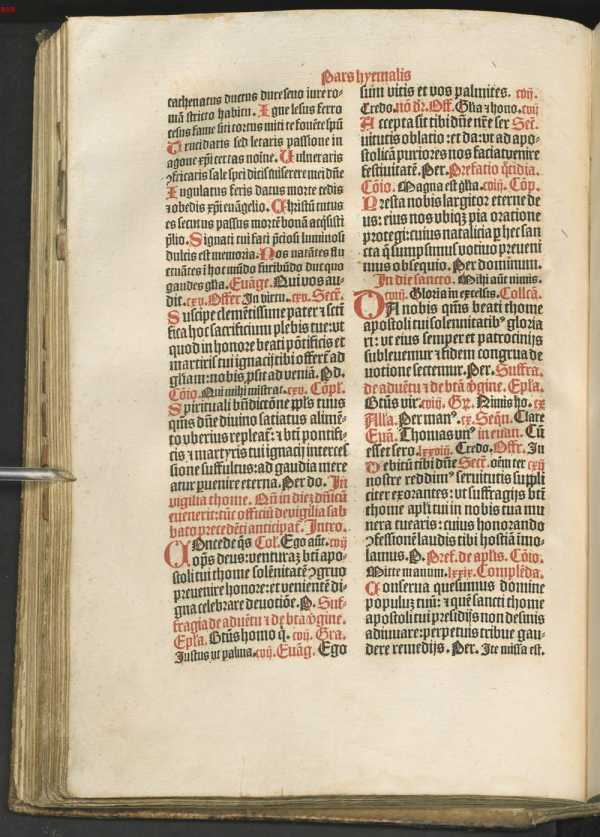 Pars hyemalis
cathenatus ductus dure seuo iure ro-
mā stricto habitu. Igne lesus ferro
cesus fame siti tortus miti te fouēte spū
Trucidaris sed letaris passione in
agone xp̄i certās noīne. Vulneraris
ꝛ̄fricaris sale spei dicis miserere mei dn̄e
Iugulatus feris datus morte cedis
⁊ obedis xp̄i euāgelio. Christū tutus
es secutus passus mortē bonā acq̄sisti
p̄lio. Signati tui fati p̄ciosi luminosi
dulcis est memoria. Nos natātes flu
ctuātes ī hoc mūdo furibūdo duc quo
gaudes gl̄ia. Euāge. Qui vos au-
dit. cxv. Offer. In virtu. cxv. Secr̄.
Suscipe clementissime pater ⁊ sctī
fica hoc sacrificium plebis tue: vt
quod in honore beati pōtificis et
martiris tui ignacij tibi offert̄ ad
gl̄iam: nobis p̄sit ad veniā. Pd.
Cōio. Qui mihi mīstrat. cxv. Cōpl̄.
Spirituali bn̄dictōne ppl̄s tuus
qūs dn̄e diuino satiatus alimē-
to vberius repleat̄: ⁊ btī pontifi-
cis ⁊ martyris tui ignacij interces
sione suffultus: ad gaudia mere
atur puenire eterna. Per do. In
vigilia thome. Qn̄ in diez dn̄icā
euenerit: tūc officiū de vigilia sab
bato precedēti anticipat̄. Intro.
Ego aūt. cvij
COncede q̄s Col.
opūs deus: venturaz bt̄i apo-
stoli tui thome solēnitatē ꝯgruo
preuenire honore: et venientē di-
gna celebrare deuotiōe. P. Suf-
fragia de aduētu ⁊ de btā v̄gine.
Epl̄a. Bt̄us homo q̄. cvij. Gra.
Iustus vt palma. cvij. Euāg. Ego
sum vitis et vos palmites. cvij.
Credo. nō dr̄. Off. Gl̄ia ⁊ hono. cvij
Accepta sit tibi dn̄e nr̄e ser Secr̄.
uitutis oblatio: et da: vt ad apo-
stolicā puriores nos faciat venire
festiuitatē. Per. Prefatio q̄tidia.
Cōio. Magna est gl̄ia. cvij. Cōp.
Presta nobis largitor eterne de
us: eius nos vbiqz pia oratione
protegi: cuius natalicia p hec san
cta q̄ sumpsimus votiuo preueni
mus obsequio. Per dominum.
In die sancto. Mihi aūt nimis.
cvij. Gloria in excelsis. Collcā.
DA nobis qūs beati thome
apostoli tui solennitatibꝰ gloria
ri: vt eius semper et patrocinijs
subleuemur ⁊ fidem congrua de
uotione sectemur. Per. Suffra.
de aduētu ⁊ de btā v̄gine. Epl̄a.
Bt̄us vir. cviij. Gr̄. Nimis ho. cx
Alla. Per manꝰ. cx. Seqn̄. Clare
Euā. Thomas vnꝰ in euāti. Cū
esset sero. lxxviij. Credo. Offr̄. In
oēm ter cxij
Debitū tibi dn̄e Secr̄.
nostre reddimꝰ seruitutis suppli
citer exorantes: vt suffragijs bt̄i
thome apl̄i tui in nobis tua mu
nera tuearis: cuius honorando
ꝯfessionē laudis tibi hostiā imo-
lamus. P. Pref. de apl̄is. Cōio.
Mitte manum. lxxix. Complēda.
Conserua quesumus domine
populuz tuū: ⁊ quē sancti thome
apostoli tui presidijs non desinis
adiuuare: perpetuis tribue gau-
dere remedijs. Per. Ite missa est.